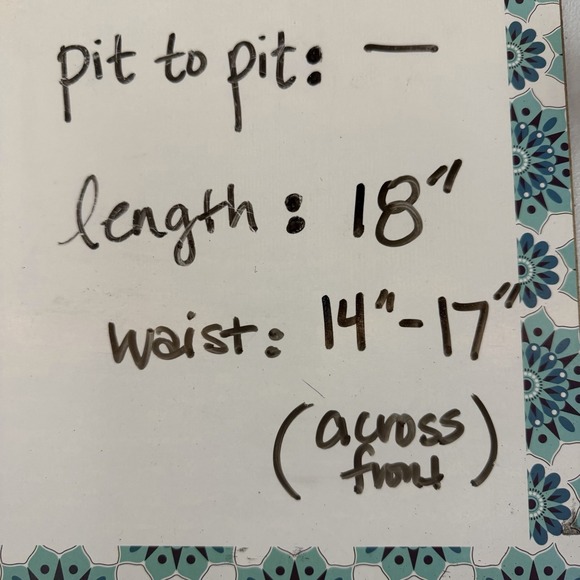 pit to pit: —
length: 18"
waist: 14"-17"
(across
front)